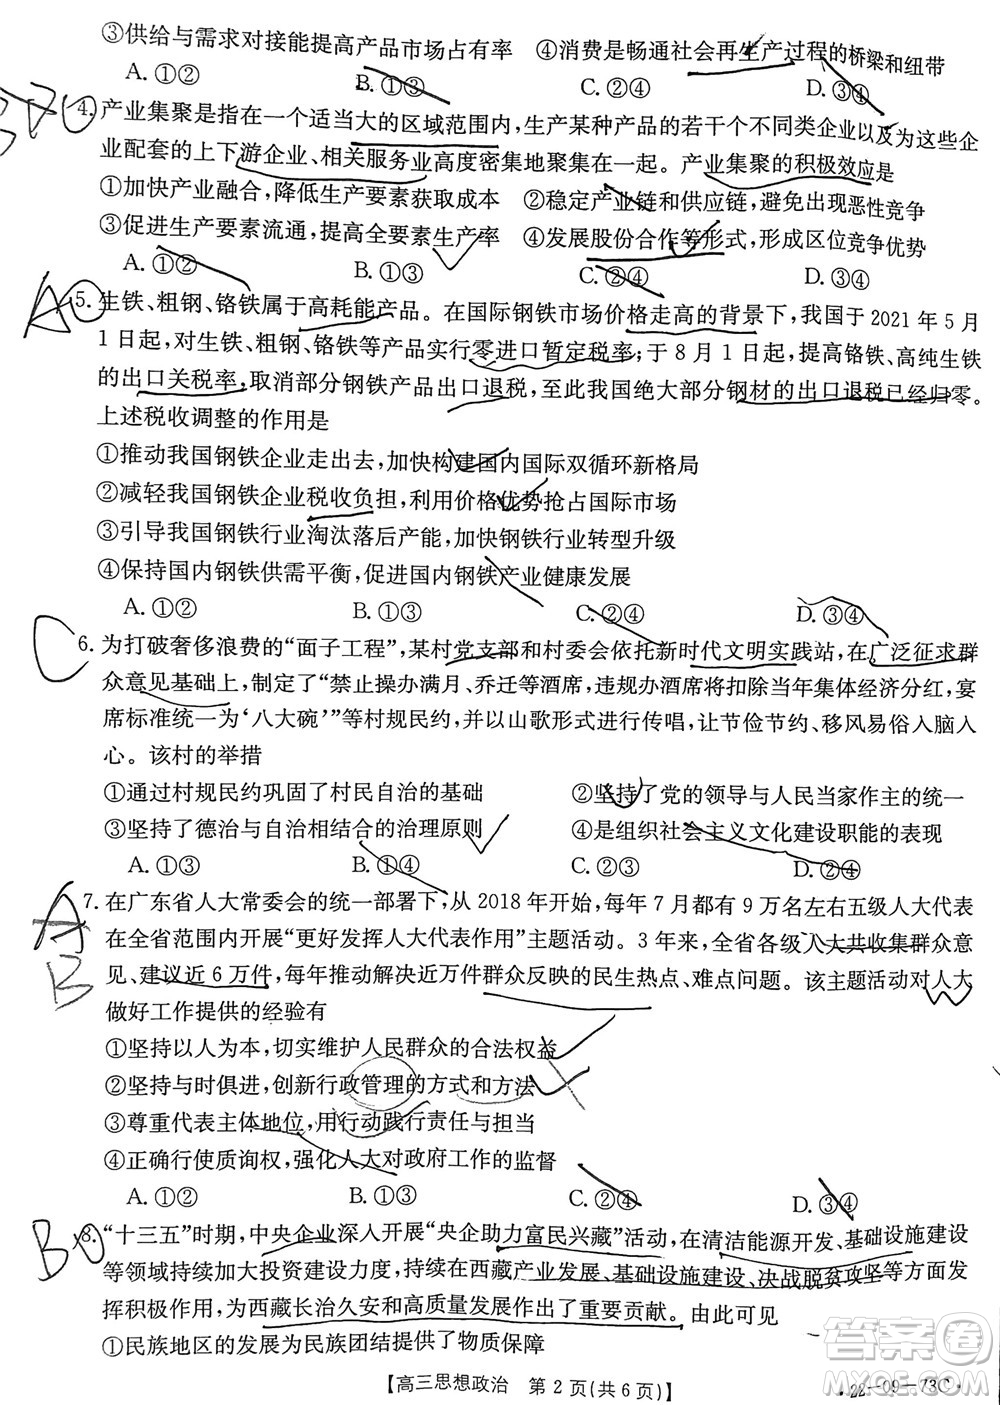 ③供给与需求对接能提高产品市场占有率　④消费是畅通社会再生产过程的桥梁和纽带
A. ①②　B. ①③　C. ②④　D. ③④
4. 产业集聚是指在一个适当大的区域范围内,生产某种产品的若干个不同类企业以及为这些企
业配套的上下游企业、相关服务业高度密集地聚集在一起。产业集聚的积极效应是
①加快产业融合,降低生产要素获取成本　②稳定产业链和供应链,避免出现恶性竞争
③促进生产要素流通,提高全要素生产率　④发展股份合作等形式,形成区位竞争优势
A. ①②　B. ①③　C. ②④　D. ③④
5. 生铁、粗钢、铬铁属于高耗能产品。在国际钢铁市场价格走高的背景下,我国于 2021 年 5 月
1 日起,对生铁、粗钢、铬铁等产品实行零进口暂定税率;于 8 月 1 日起,提高铬铁、高纯生铁
的出口关税率,取消部分钢铁产品出口退税,至此我国绝大部分钢材的出口退税已经归零。
上述税收调整的作用是
①推动我国钢铁企业走出去,加快构建国内国际双循环新格局
②减轻我国钢铁企业税收负担,利用价格优势抢占国际市场
③引导我国钢铁行业淘汰落后产能,加快钢铁行业转型升级
④保持国内钢铁供需平衡,促进国内钢铁产业健康发展
A. ①②　B. ①③　C. ②④　D. ③④
C
6. 为打破奢侈浪费的“面子工程”,某村党支部和村委会依托新时代文明实践站,在广泛征求群
众意见基础上,制定了“禁止操办满月、乔迁等酒席,违规办酒席者不享受当年集体经济分红,宴
席标准统一为‘八大碗’”等村规民约,并以山歌形式进行传唱,让节俭节约、移风易俗入脑入
心。该村的举措
①通过村规民约巩固了村民自治的基础　②坚持了党的领导与人民当家作主的统一
③坚持了德治与自治相结合的治理原则　④是组织社会主义文化建设职能的表现
A. ①③　B. ①④　C. ②③　D. ②④
A
B
7. 在广东省人大常委会的统一部署下,从 2018 年开始,每年 7 月都有 9 万名左右五级人大代表
在全省范围内开展“更好发挥人大代表作用”主题活动。3 年来,全省各级人大共收集群众意
见、建议近 6 万件,每年推动解决近万件群众反映的民生热点、难点问题。该主题活动对人大
做好工作提供的经验有
①坚持以人为本,切实维护人民群众的合法权益
②坚持与时俱进,创新行政管理的方式和方法
③尊重代表主体地位,用行动践行责任与担当
④正确行使质询权,强化人大对政府工作的监督
A. ①②　B. ①③　C. ②④　D. ③④
B
8. “十三五”时期,中央企业深入开展“央企助力富民兴藏”活动,在清洁能源开发、基础设施建设
等领域持续加大投资建设力度,持续在西藏产业发展、基础设施建设、决战脱贫攻坚等方面发
挥积极作用,为西藏长治久安和高质量发展作出了重要贡献。由此可见
①民族地区的发展为民族团结提供了物质保障
【高三思想政治　第 2 页(共 6 页)】
·22—09—73C·
答案圈